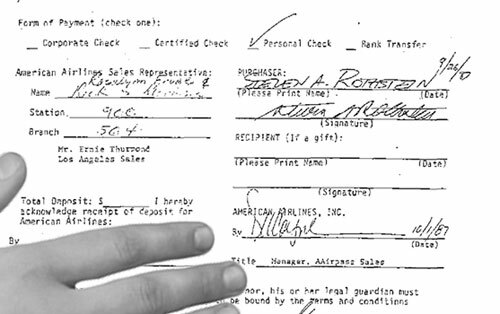 Form of Payment (check one):
__ Corporate Check __ Certified Check ✓ Personal Check __ Bank Transfer
American Airlines Sales Representative:
Name
Station
Branch 504
Mr. Ernie Thurmond
Los Angeles Sales
Total Deposit: $______ I hereby
acknowledge receipt of deposit for
American Airlines:
By
PURCHASER:
STEVEN A. ROTHSTEIN
(Please Print Name) (Date)
(Signature)
RECIPIENT (If a gift):
(Please Print Name) (Date)
(Signature)
AMERICAN AIRLINES, INC.
By 10/1/87
(Date)
Title Manager, AAirpass Sales
nor, his or her legal guardian must
be bound by the terms and conditions